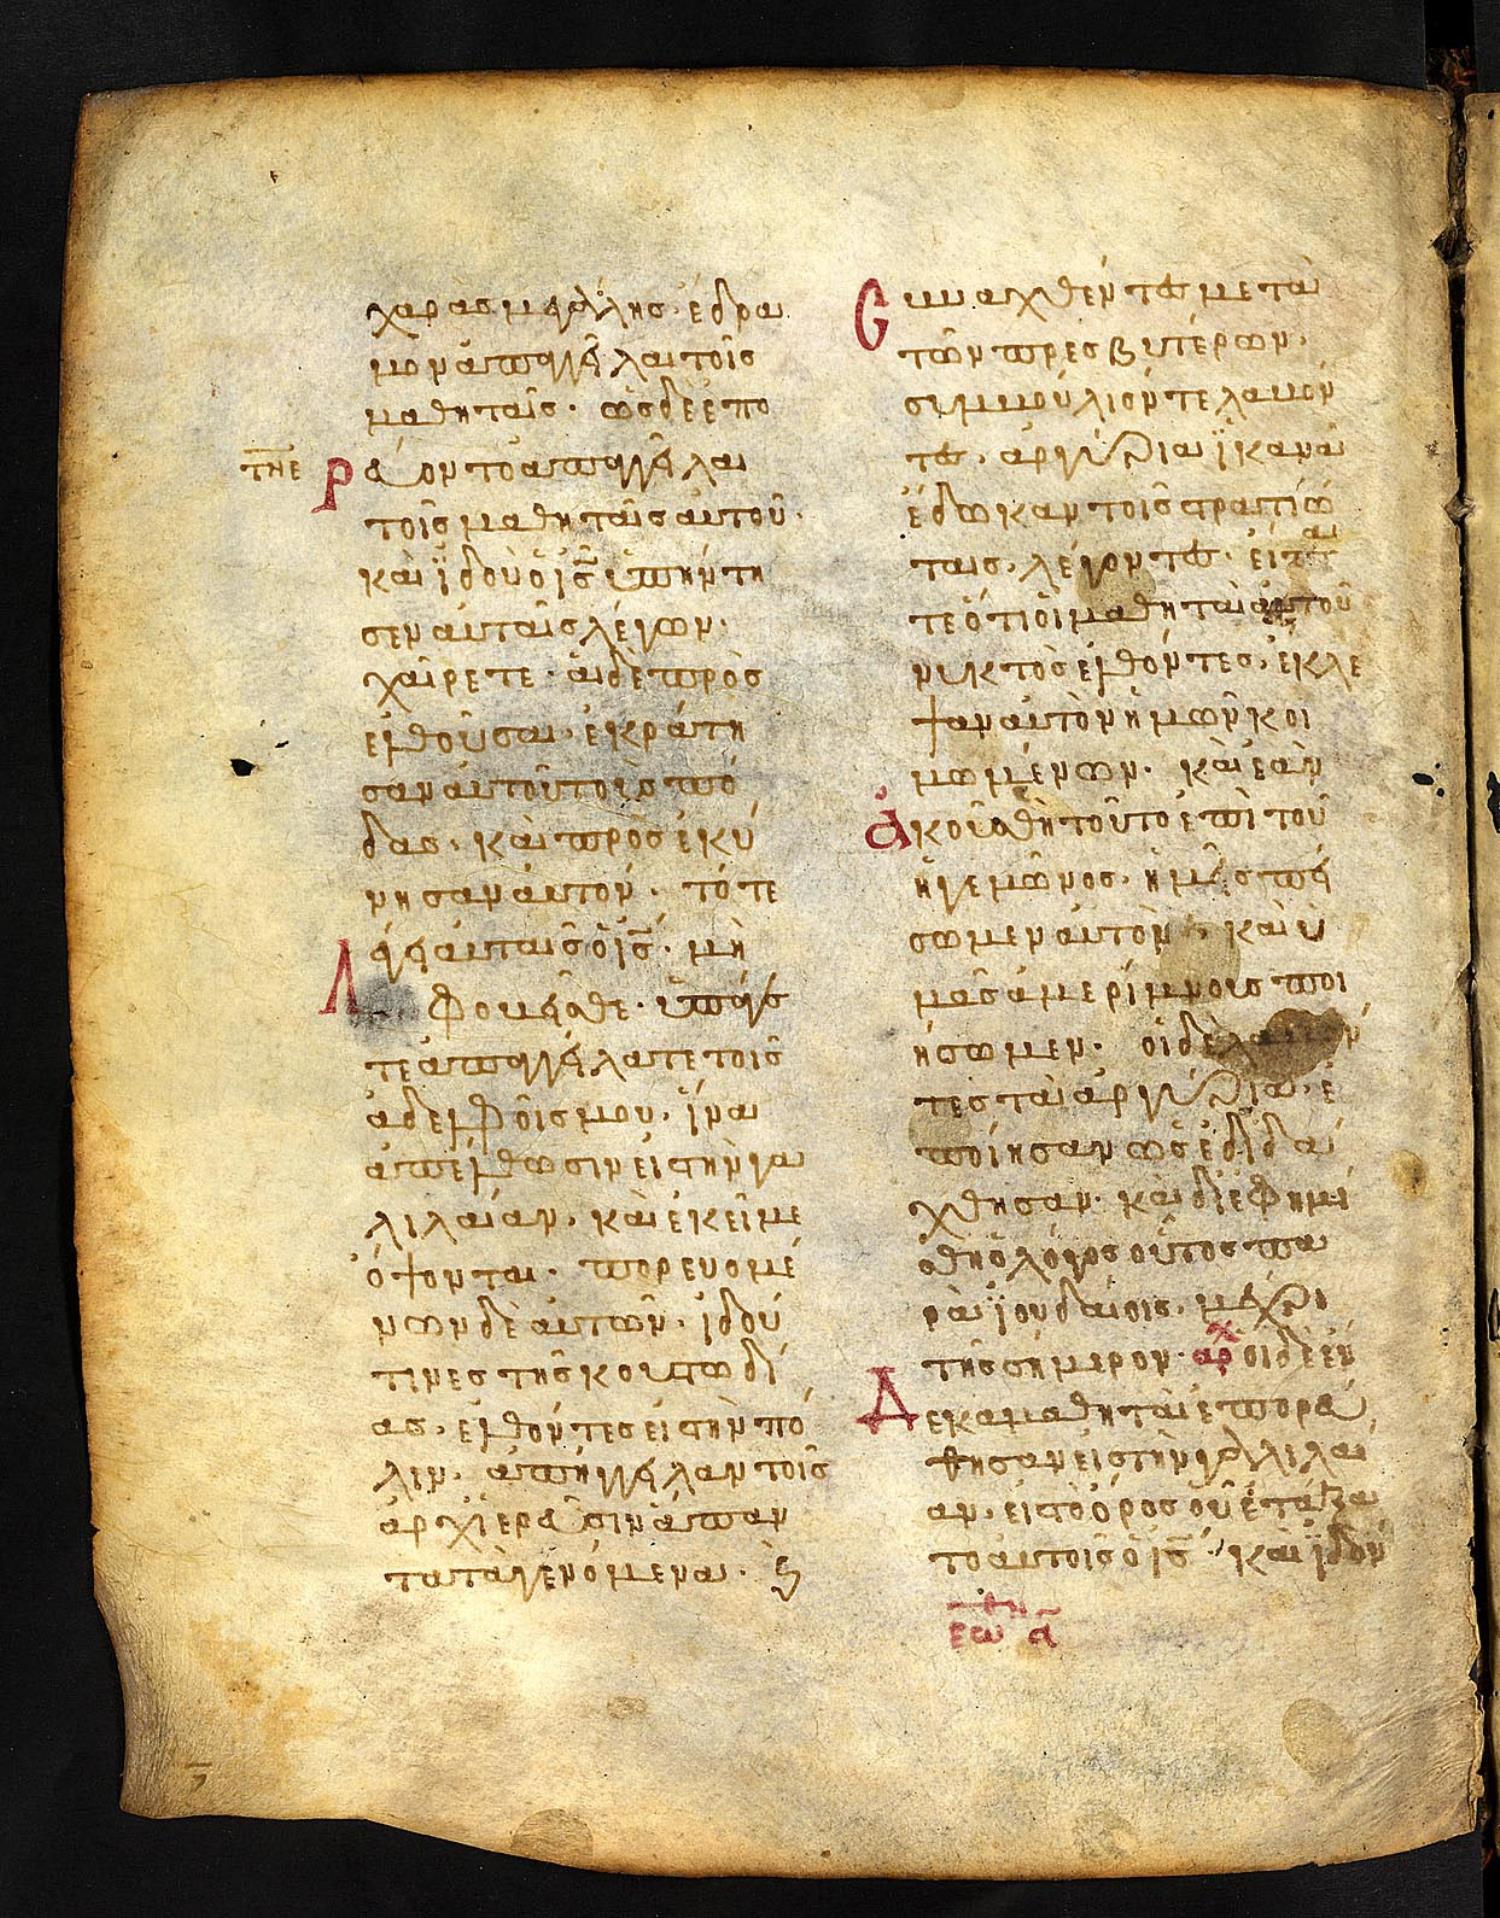 χαρὰσ μεγάλησ· ἔδρα
μον ἀπαγγεῖλαι τοῖσ
μαθηταῖσ· ὡσ δὲ ἐπο
τνε
ρεύοντο ἀπαγγεῖλαι
τοῖσ μαθηταῖσ αὐτοῦ·
καὶ ϊδοὺ ὁ ισ ὑπήντη
σεν αὐταῖσ λέγων·
χαίρετε· αἱ δὲ προσ
ελθοῦσαι· ἐκράτη
σαν αὐτοῦ τοὺσ πό
δασ· καὶ προσεκύ
νησαν αὐτόν· τότε
λέγει αὐταῖσ ὁ ισ· μὴ
φοβεῖσθε· ὑπάγε
τε ἀπαγγείλατε τοῖσ
ἀδελφοῖσ μου· ἵνα
ἀπέλθωσιν εἰσ τὴν γα
λιλαίαν· καὶ ἐκεῖ με
ὄψονται· πορευομέ
νων δὲ αὐτῶν· ἰδού
τινεσ τῆσ κουστωδί
ασ· ἐλθόντεσ εἰσ τὴν πό
λιν· ἀπήγγειλαν τοῖσ
ἀρχιερεῦσιν ἅπαν
τα τὰ γενόμενα· ϛ
Συναχθέντεσ μετὰ
τῶν πρεσβυτέρων·
συμβούλιόν τε λαβόν
τεσ· ἀργύρια ϊκανὰ
ἔδωκαν τοῖσ στρατιώ
ταισ· λέγοντεσ· εἴπα
τε ὅτι οἱ μαθηταὶ αὐτοῦ
νυκτὸσ ἐλθόντεσ· ἔκλε
ψαν αὐτὸν ἡμῶν κοι
μωμένων· καὶ ἐὰν
ἀκουσθῆ τοῦτο ἐπὶ τοῦ
ἡγεμῶνοσ· ἡμεῖσ πεί
σωμεν αὐτὸν· καὶ ὑ
μᾶσ ἀμερίμνουσ ποι
ήσωμεν· οἱ δὲ λαβόν
τεσ τὰ ἀργύρια· ἐ
ποίησαν ὡσ ἐδιδά
χθησαν· καὶ διεφημί
σθη ὁ λόγοσ οὗτοσ πα
ρὰ ϊουδαίοισ· μέχρι
τῆσ σήμερον· αρχ οἱ δὲ ἕν
Δεκα μαθηταὶ ἐπορεύ
θησαν εἰσ τὴν γαλιλαί
αν· εἰσ τὸ ὄροσ οὗ ἐτάξα
το αὐτοῖσ ὁ ισ· καὶ ϊδόν
εω α